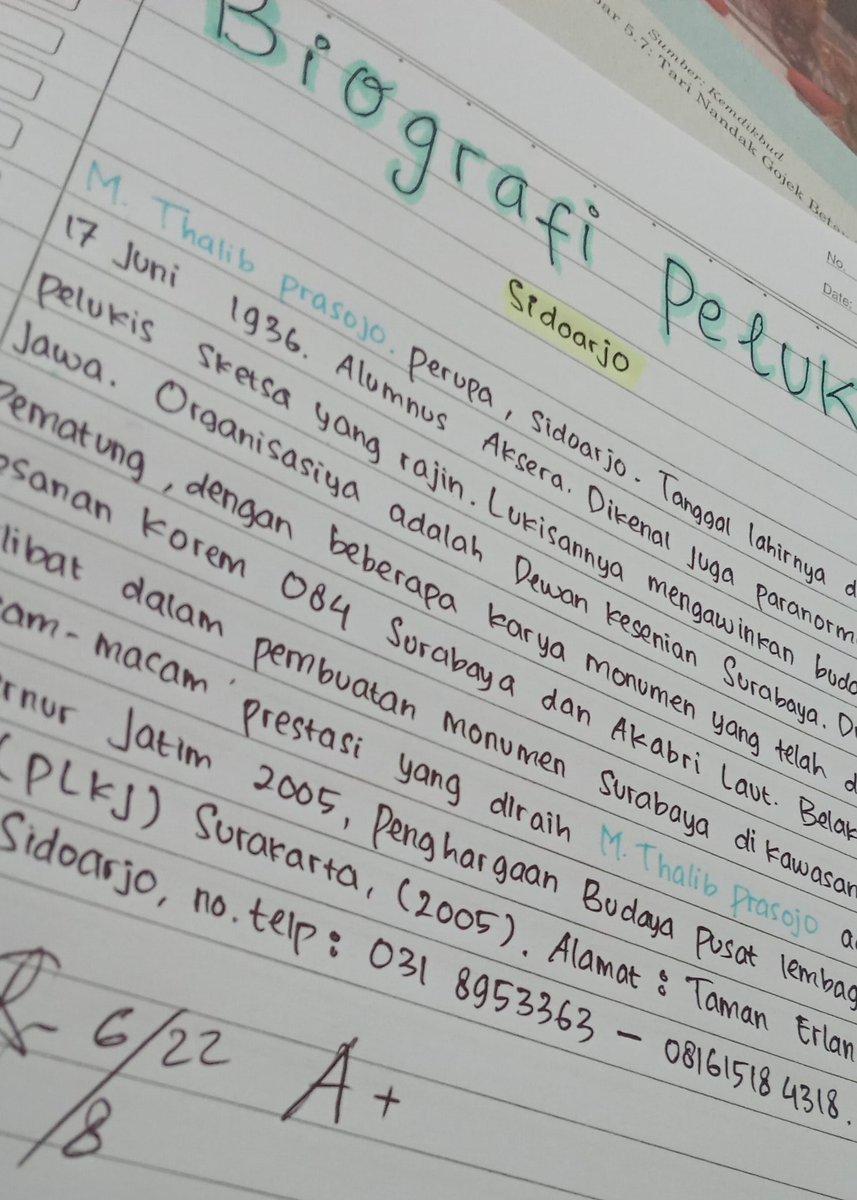 Sumber: Kemdikbud
bar 5.7: Tari Nandak Gojek Betaw
No.
Date:
Biografi Peluk
Sidoarjo
M. Thalib Prasojo. Perupa, Sidoarjo. Tanggal lahirnya d
17 Juni 1936. Alumnus Aksera. Dikenal juga paranorm
Pelukis sketsa yang rajin. Lukisannya mengawinkan buda
Jawa. Organisasiya adalah Dewan Kesenian Surabaya. D
Pematung, dengan beberapa karya monumen yang telah d
esanan Korem 084 Surabaya dan Akabri Laut. Belak
libat dalam pembuatan monumen Surabaya di kawasan
cam-macam prestasi yang diraih M. Thalib Prasojo a
ernur Jatim 2005, Penghargaan Budaya Pusat lembag
(PLKJ) Surakarta, (2005). Alamat : Taman Erlan
Sidoarjo, no.telp : 031 8953363 - 08161518 4318.
6/22
/8
A+